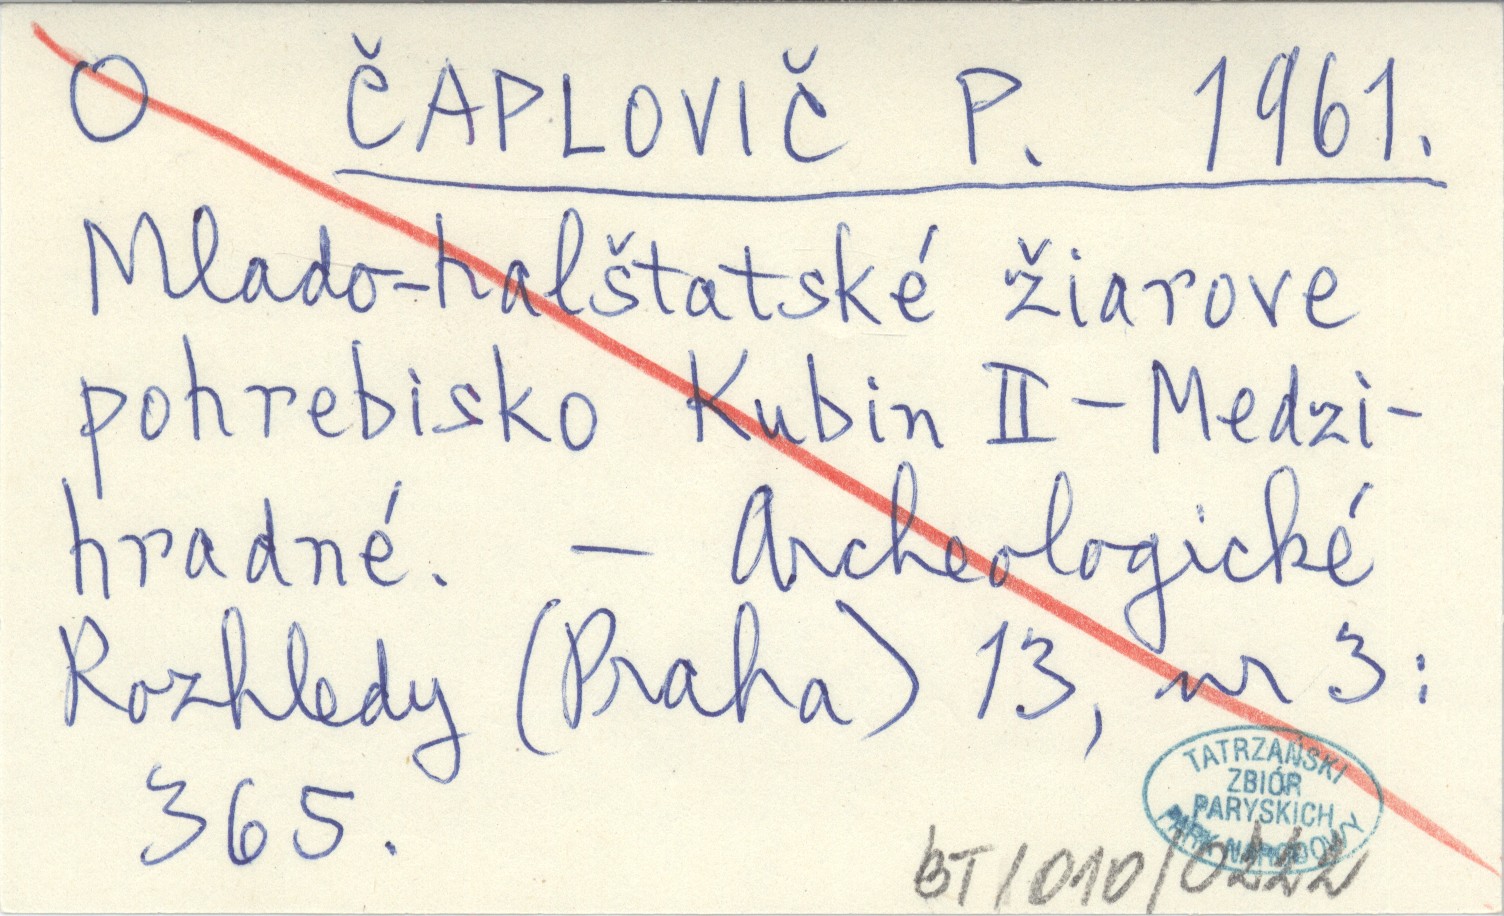 O ČAPLOVIČ P. 1961.
Mlado-halštatské žiarove
pohrebisko Kubin II - Medzi-
hradné. - Archeologické
Rozhledy (Praha) 13, nr 3:
365.
TATRZAŃSKI
ZBIÓR
PARYSKICH
PARK NARODOWY
BT/010/0222